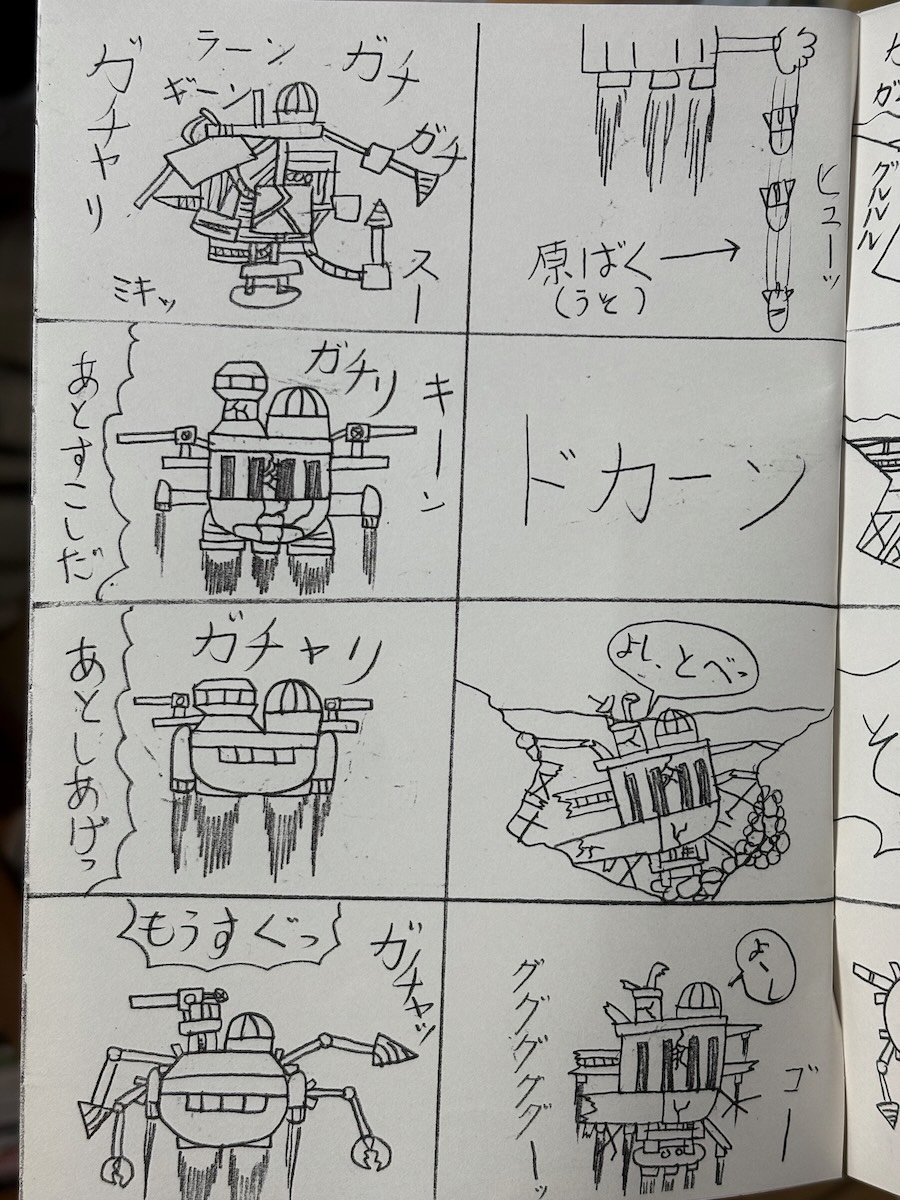 グルルル
ヒューッ
原ばく
(うそ)
ドカーン
よし、とべっ
よーし
ゴー
グググググーッ
ガチ
ガチ
スー
ラーン
ギーン
ガチャリ
ミキッ
キーン
ガチリ
あとすこしだ
ガチャリ
あとしあげっ
ガチャッ
もうすぐっ